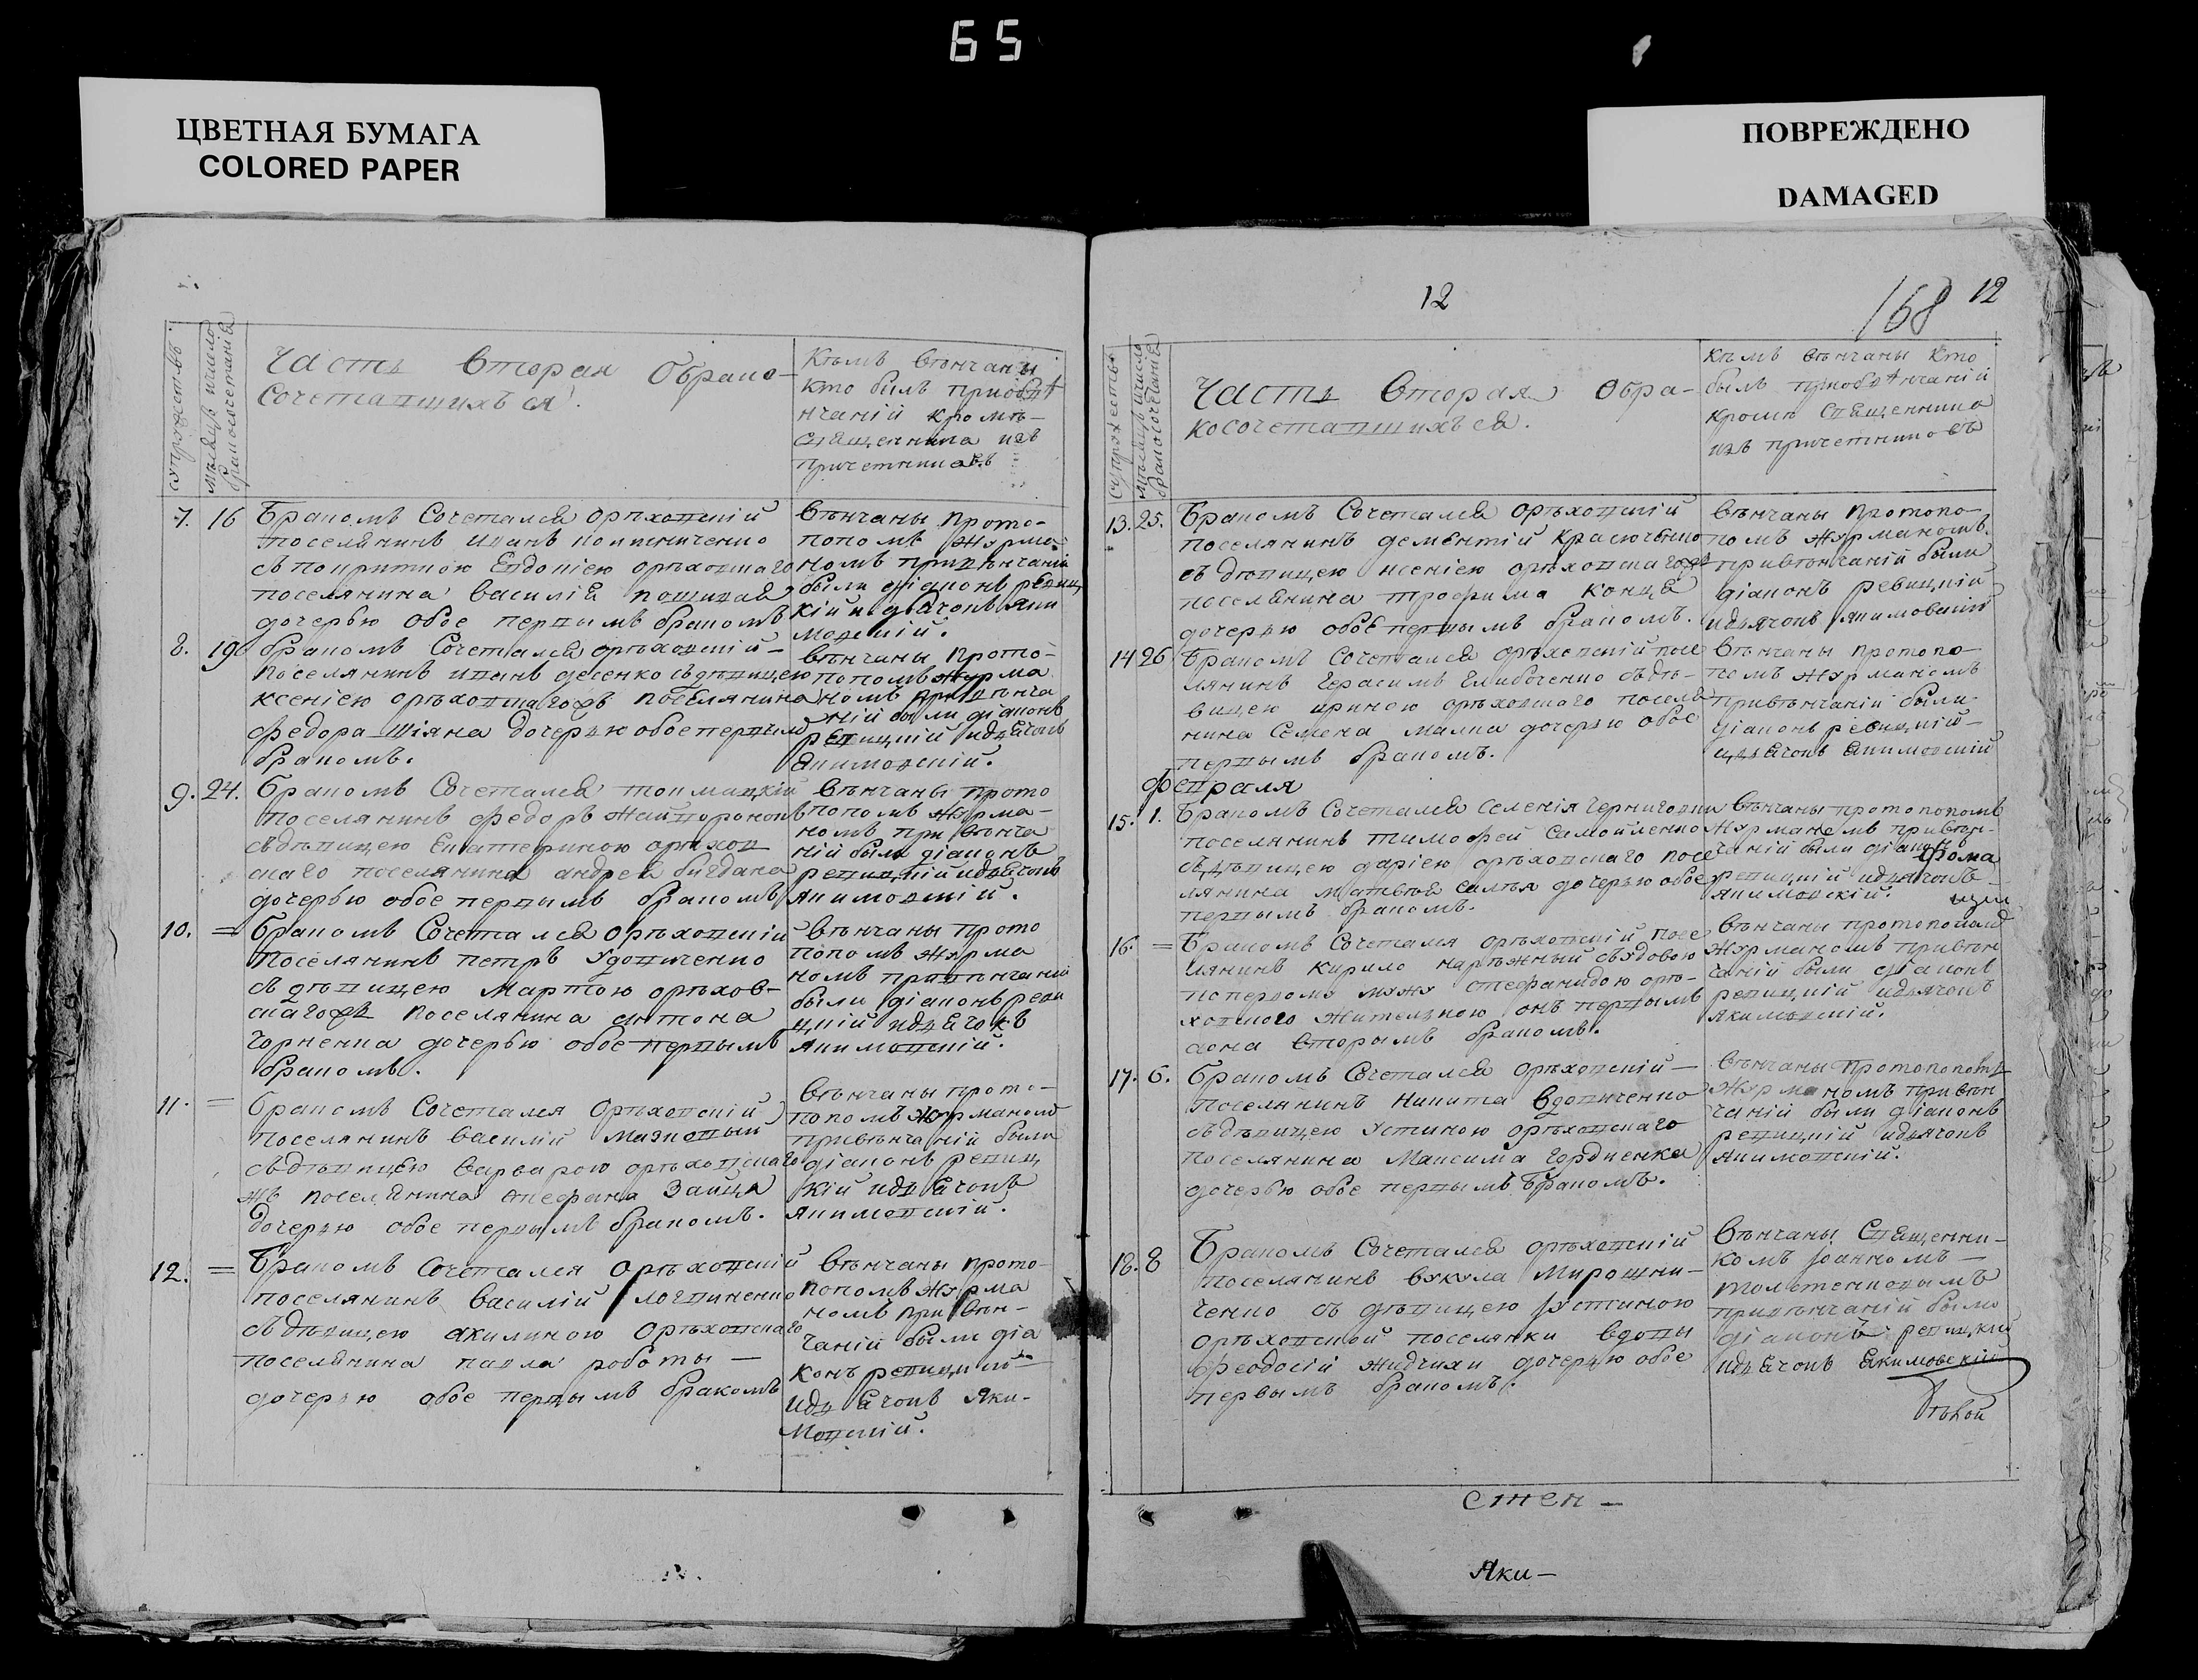 65
ЦВЕТНАЯ БУМАГА
COLORED PAPER
ПОВРЕЖДЕНО
DAMAGED
супружествъ
Мѣсяцъ ичисло
бракосочетанія
Часть вторая Обрако-
Сочетавшихъся.
Кѣмъ вѣнчаны
кто былъ при
нчаній кромѣ-
Священника изъ
причетниковъ
7. 16 Бракомъ Сочетался орѣховскій
поселянинъ Иванъ
съ Евдокіею орѣховскаго
поселянина василія
дочерью обое первымъ бракомъ
вѣнчаны прото-
попомъ Журма-
номъ привѣнчаній
были діаконъ ревиц
кій идьячокъ яки
мовскій.
8. 19 бракомъ Сочетался орѣховскій-
поселянинъ иванъ десенко съдѣвицею
ксеніею орѣховскагожъ поселянина
федора шіяна дочерью обое первымъ
бракомъ.
вѣнчаны прото-
попомъ Журма
номъ привѣнча
ній были діаконъ
ревицкій идьячокъ
якимовскій.
9. 24. бракомъ Сочетался токмацкій
поселянинъ федоръ
съдѣвицею Екатериною орѣхов
скаго поселянина андрея богдана
дочерью обое первымъ бракомъ
вѣнчаны прото
попомъ Журма-
номъ при вѣнча
ній были діаконъ
ревицкій идьячокъ
якимовскій.
10. = бракомъ Сочетался орѣховскій
поселянинъ петръ Удовиченко
съ дѣвицею Марфою орѣхов-
скагожъ поселянина антона
Горненка дочерью обое первымъ
бракомъ.
вѣнчаны прото
попомъ Журма
номъ привѣнчаній
были діаконъ реви
цкій идьячокъ
якимовскій.
11. = бракомъ Сочетался Орѣховскій
поселянинъ василій
съдѣвицею варварою орѣховскаго
жъ поселянина стефана Зайца
дочерью обое первымъ бракомъ.
вѣнчаны прото-
попомъ Журманомъ
привѣнчаній были
діаконъ ревиц
кій идьячокъ
якимовскій.
12. = Бракомъ Сочетался Орѣховскій
поселянинъ василій логвиненко
съдѣвицею акилиною Орѣховскаго
поселянина павла роботы —
дочерью обое первымъ бракомъ
вѣнчаны прото-
попомъ Журма
номъ при вѣн-
чаній были діа
конъ ревицкій
идьячокъ Яки-
мовскій.
12
168 12
супружествъ
мѣсяцъ ичисло
бракосочетанія
Часть Вторая Обра-
косочетавшихъся.
Кѣмъ вѣнчаны кто
былъ
кромѣ Священника
изъ причетниковъ
13. 25. Бракомъ Сочетался орѣховскій
поселянинъ дементій красюченко
съдѣвицею ксеніею орѣховскагожъ
поселянина трофима Конца
дочерью обое первымъ бракомъ.
вѣнчаны протопо-
помъ Журманомъ
привѣнчаній были
діаконъ ревицкій
идьячокъ якимовскій
14 26 Бракомъ Сочетался орѣховскій посе
лянинъ Герасимъ Глибоченко съдѣ-
вицею ириною орѣховскаго поселя
нина Семена малка дочерью обое
первымъ бракомъ.
вѣнчаны протопо-
помъ Журманомъ
привѣнчаній были
діаконъ ревицкій-
идьячокъ якимовскій
февраля
15. 1. Бракомъ Сочетался селенія Черниговки
поселянинъ тимофей самойленко
съдѣвицею даріею орѣховскаго посе
лянина дочерью обое
первымъ бракомъ.
вѣнчаны протопопомъ
Журманомъ привѣн-
чаній были діаконъ
Фома
ревицкій идьячокъ
якимовскій.
16. = Бракомъ Сочетался орѣховскій посе
лянинъ кирило нарѣжный съвдовою
попервомъ мужу стефанидою орѣ-
ховскою жителькою онъ первымъ
аона вторымъ бракомъ.
вѣнчаны протопопомъ
Журманомъ привѣн
чаній были діаконъ
ревицкій идьячокъ
якимовскій.
17. 6. бракомъ Сочетался орѣховскій —
поселянинъ никита вдовиченко
съдѣвицею Устиною орѣховскаго
поселянина Максима гордиенка
дочерью обое первымъ бракомъ.
вѣнчаны протопопомъ
Журманомъ привѣн
чаній были діаконъ
ревицкій идьячокъ
якимовскій.
18. 8 Бракомъ Сочетался орѣховскій
поселянинъ вукула Мирошни-
ченко съ дѣвицею Устиною
орѣховской поселянки вдовы
феодосій жидчихи дочерью обое
первымъ бракомъ.
вѣнчаны Священни-
комъ Іоанномъ —
привѣнчаній были
діаконъ ревицкій
идьячокъ якимовскій
Яки-